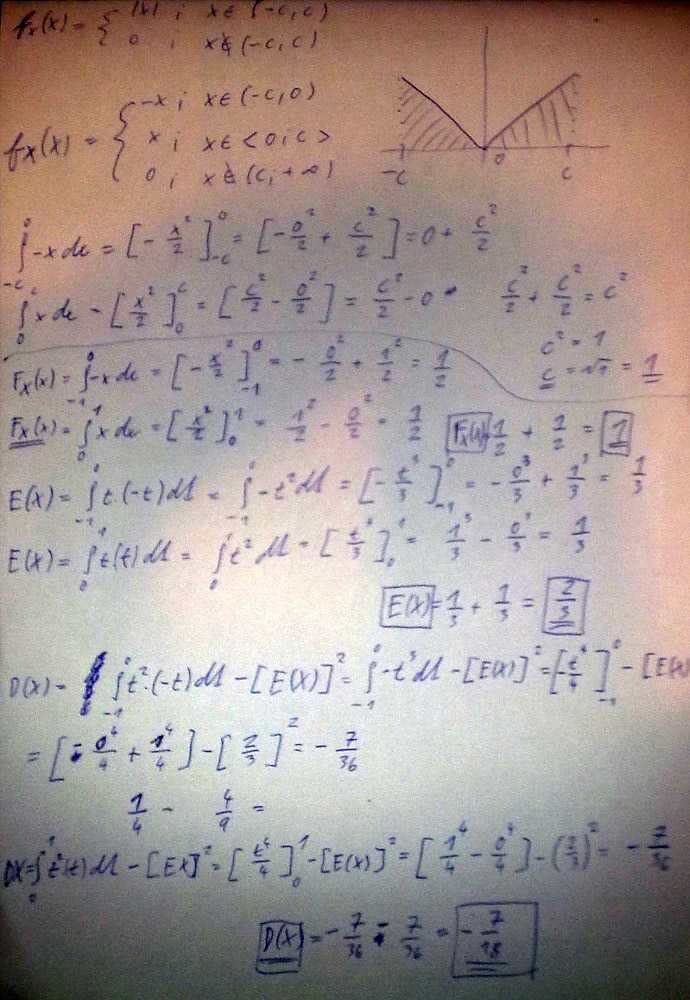 fₓ(x) = { |x| ; x∈(-c,c)
0 ; x∉(-c,c)
fₓ(x) = { -x ; x∈(-c,0)
x ; x∈<0,c>
0 ; x∉(c,+∞)
-c 0 c
∫₋c⁰ -x dx = [-x²/2]₋c⁰ = [-0²/2 + c²/2] = 0 + c²/2
∫₀ᶜ x dx = [x²/2]₀ᶜ = [c²/2 - 0²/2] = c²/2 - 0 c²/2 + c²/2 = c²
c² = 1
c = √1 = 1
Fₓ(x) = ∫₋₁⁰ -x dx = [-x²/2]₋₁⁰ = -0²/2 + 1²/2 = 1/2
Fₓ(x) = ∫₀¹ x dx = [x²/2]₀¹ = 1²/2 - 0²/2 = 1/2 Fₓ(x) = 1/2 + 1/2 = 1
E(X) = ∫₋₁⁰ t.(-t) dt = ∫₋₁⁰ -t² dt = [-t³/3]₋₁⁰ = -0³/3 + 1³/3 = 1/3
E(X) = ∫₀¹ t(t) dt = ∫₀¹ t² dt = [t³/3]₀¹ = 1³/3 - 0³/3 = 1/3
E(X) = 1/3 + 1/3 = 2/3
D(X) = ∫₋₁⁰ t².(-t) dt - [E(X)]² = ∫₋₁⁰ -t³ dt - [E(X)]² = [-t⁴/4]₋₁⁰ - [E(X)
= [-0⁴/4 + 1⁴/4] - [2/3]² = -7/36
1/4 - 4/9 =
DX = ∫₀¹ t²(t) dt - [EX]² = [t⁴/4]₀¹ - [E(X)]² = [1⁴/4 - 0⁴/4] - (2/3)² = -7/36
D(X) = -7/36 - 7/36 = -7/18